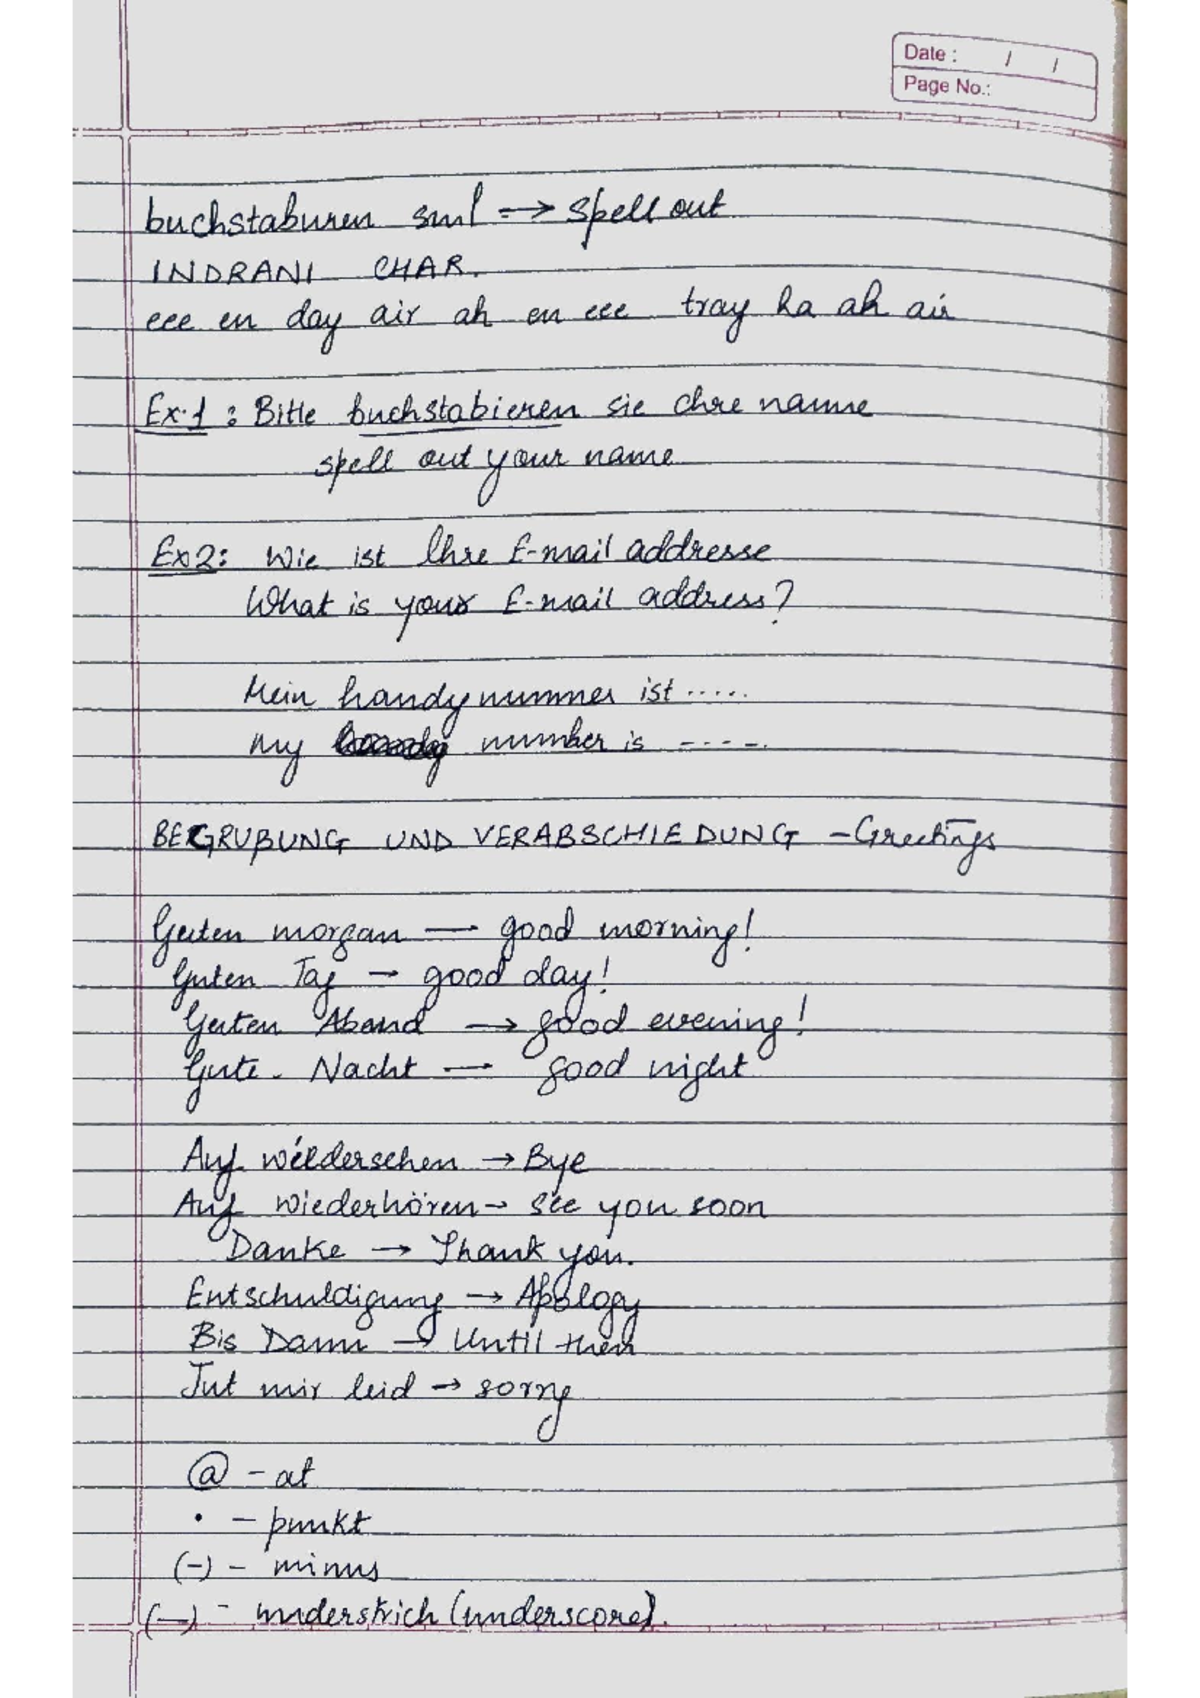 Date : / /
Page No.:
buchstaburen → spell out
INDRANI CHAR.
eee en day air ah en eee tray ha ah air
Ex.1 : Bitte buchstabieren sie chre name
spell out your name
Ex2: Wie ist Ihre E-mail addresse
What is your E-mail address?
Mein handy nummer ist .....
My number is -----.
BEGRUßUNG UND VERABSCHIEDUNG - Greetings
Guten morgan — good morning!
Guten Tag → good day!
Guten Abend → good evening!
Gute. Nacht — good night
Auf wielderschen → Bye
Auf wiederhören → see you soon
Danke → Thank you.
Entschuldigung → Apology
Bis Dann → Until then
Tut mir leid → sorry
@ - at
• - punkt
(-) - minus
(—) - understrich (underscore).